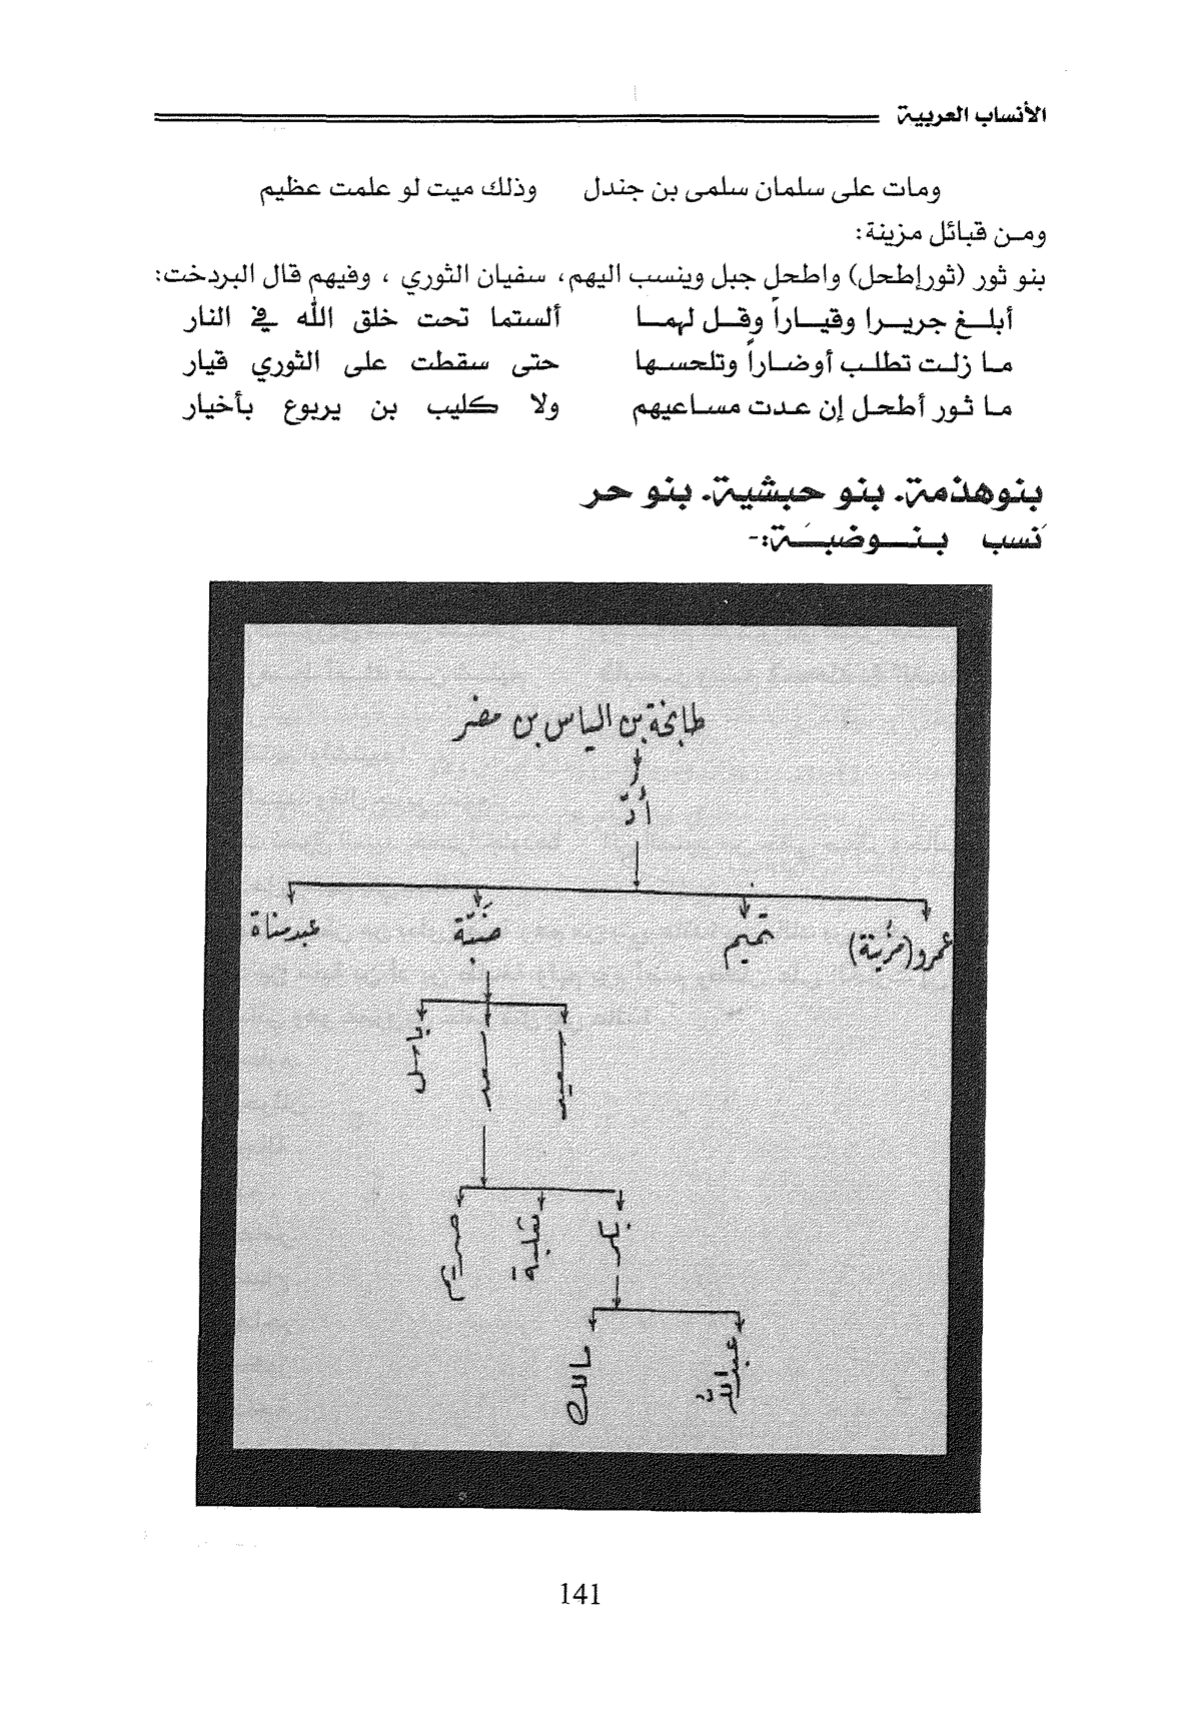 الأنساب العربية
ومات على سلمان سلمى بن جندل وذلك ميت لو علمت عظيم
ومن قبائل مزينة:
بنو ثور (ثورإطحل) واطحل جبل وينسب اليهم، سفيان الثوري ، وفيهم قال البردخت:
أبلغ جريرا وقياراً وقل لهما ألستما تحت خلق الله في النار
ما زلت تطلب أوضاراً وتلحسها حتى سقطت على الثوري قيار
ما ثور أطحل إن عدت مساعيهم ولا كليب بن يربوع بأخيار
بنوهذمة. بنو حبشية. بنو حر
نَسب بنوضبَة:-
طابخة بن الياس بن مضر
أدّ
عمرو (مزُينة) تميم ضَبّة عبدمناة
سعيد سعد باسل
بكر ثعلبة صريم
عبدالله مالك
141